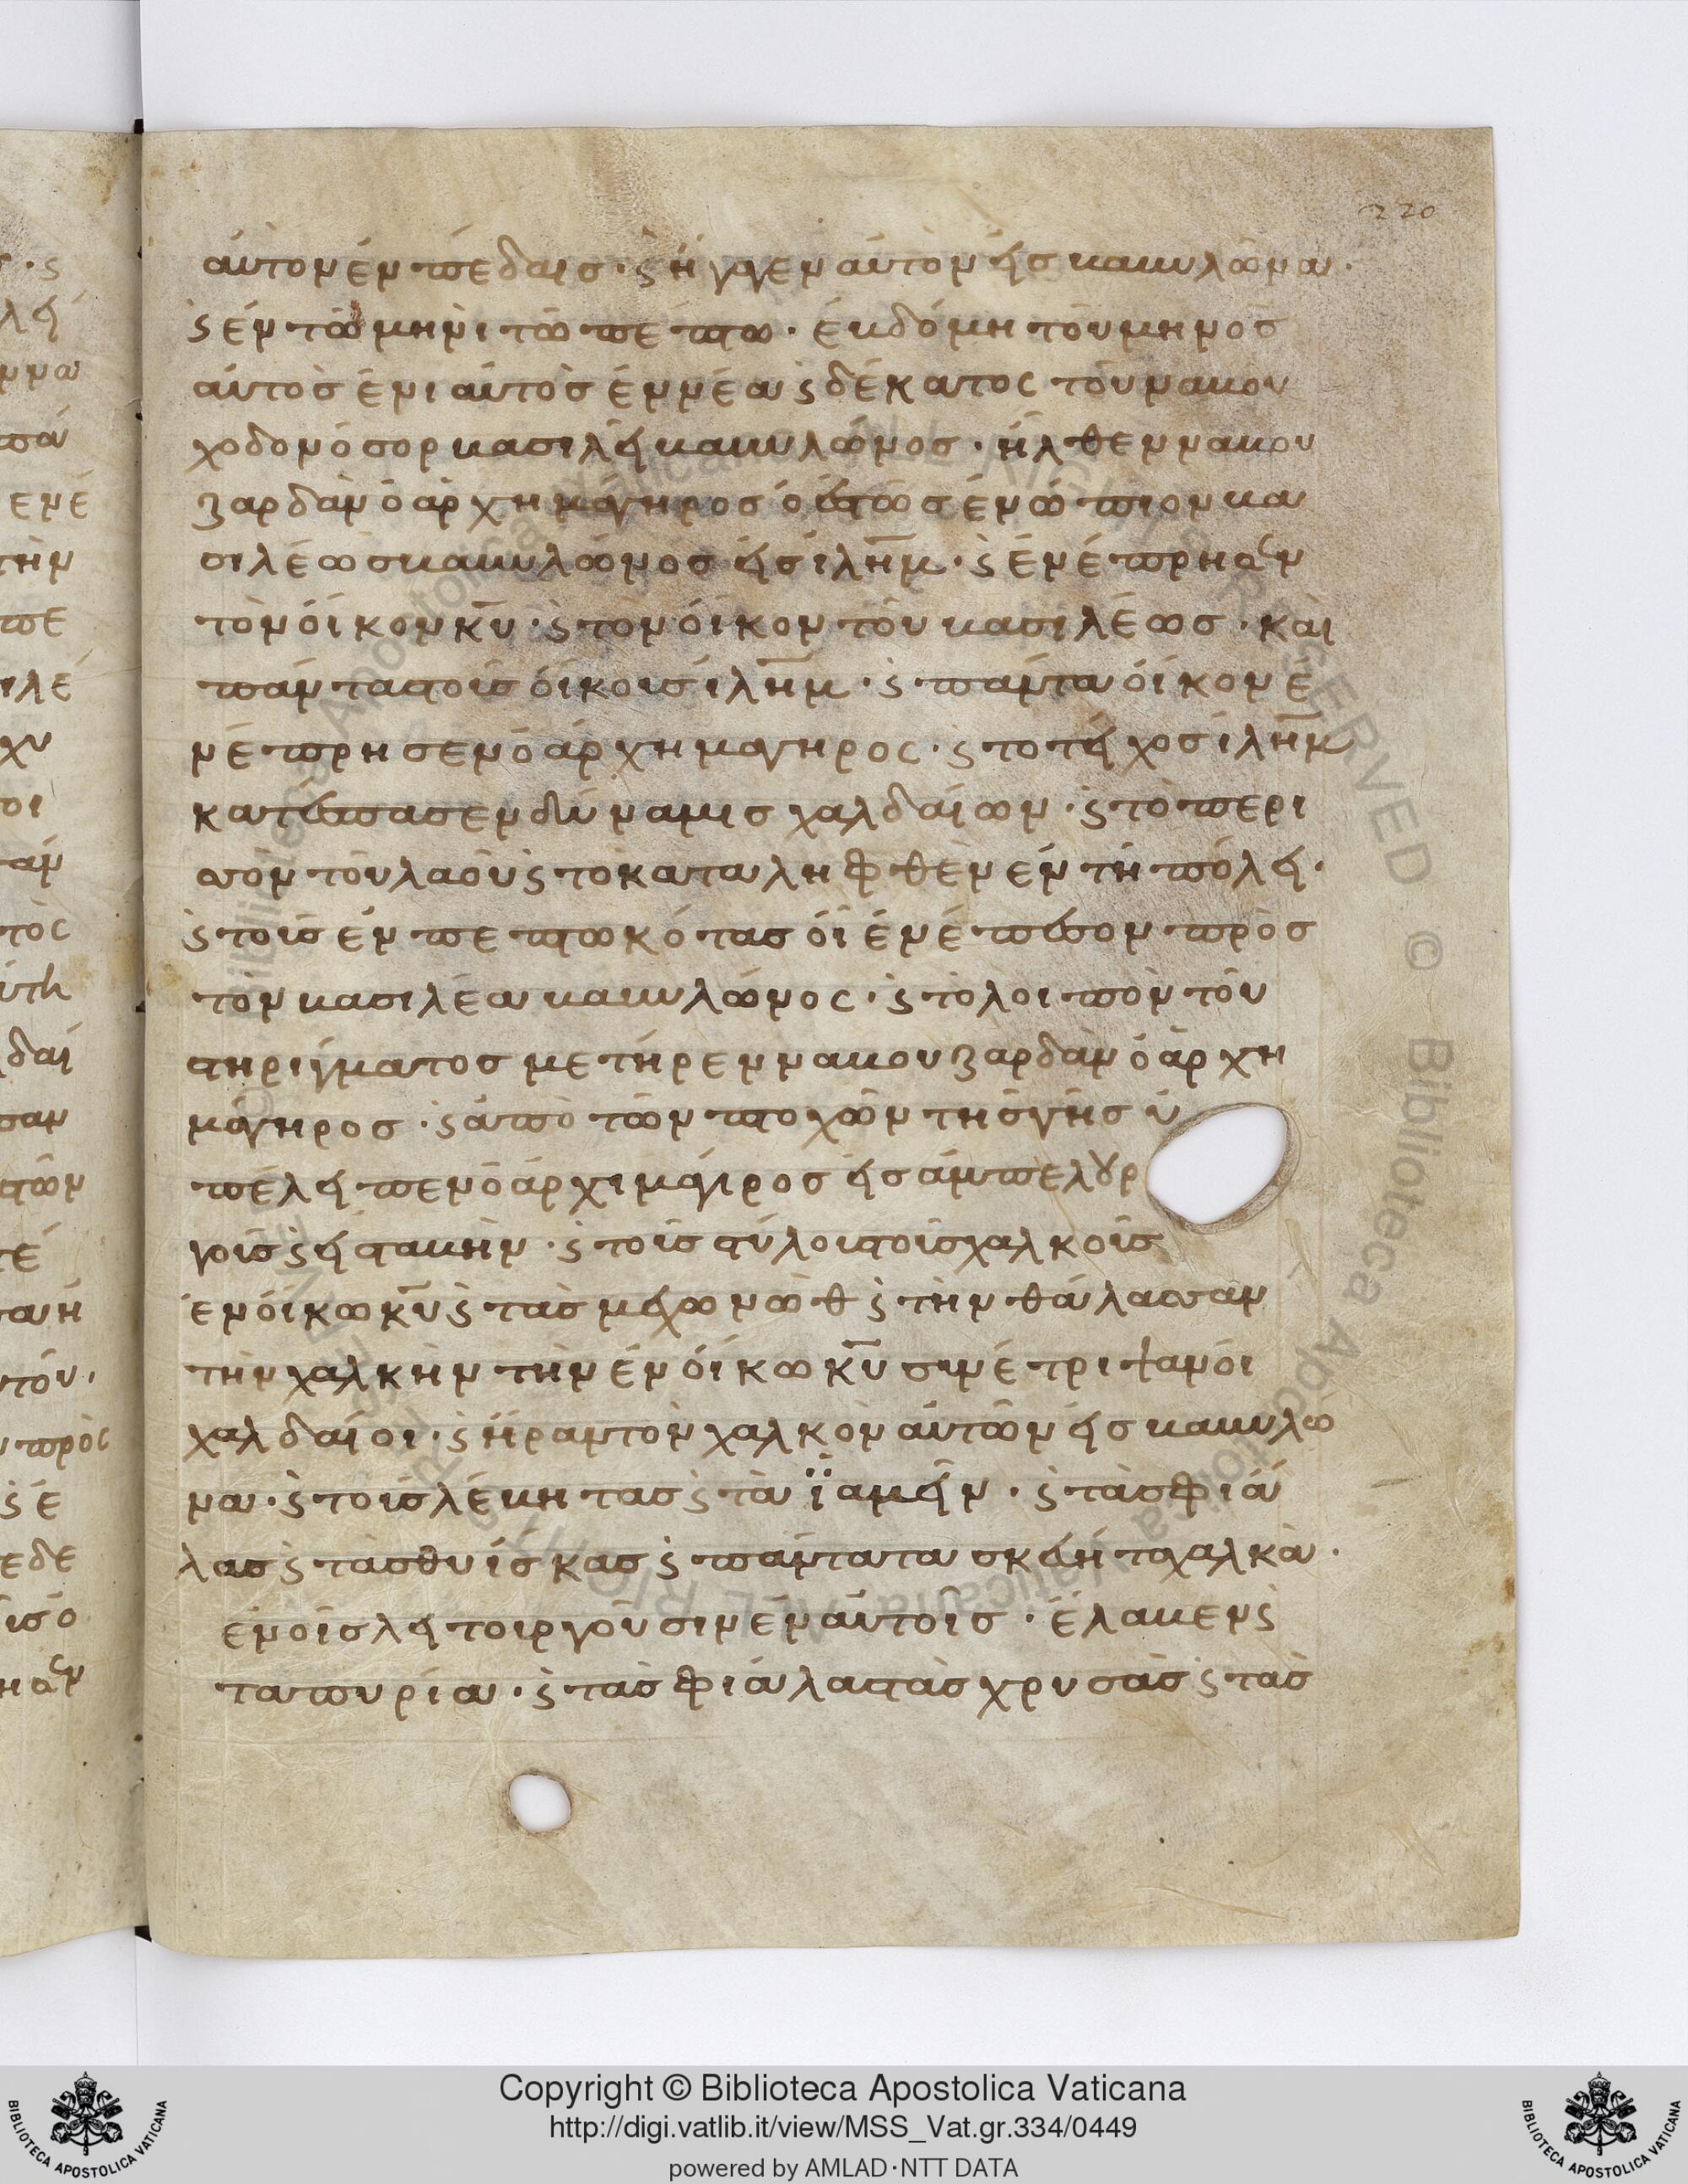 220
αὐτὸν ἐν πέδαις · ϛ ἤγαγεν αὐτὸν εἰς βαβυλῶνα ·
ϛ ἐν τῶ μηνὶ τῶ πέπτω · ἑβδόμη τοῦ μηνὸς
αὐτὸς ἐνιαυτὸς ἐννέα ϛ δέκατος τοῦ ναβου
χοδονόσορ βασιλεῖ βαβυλῶνος · ἦλθεν ναβου
ζαρδὰν ὁ ἀρχημάγηρος ὁ ἑστὼς ἐνώπιον βα
σιλέως βαβυλῶνος εἰς ἰλῆμ · ϛ ἐνέπρησεν
τὸν οἶκον κυ · ϛ τὸν οἶκον τοῦ βασιλέως · καὶ
πάντας τοὺς οἴκους ἰλῆμ · ϛ πάντα οἶκον ἐ
νέπρησεν ὁ ἀρχημάγηρος · ϛ το τεῖχος ἰλῆμ
κατέσπασεν δύναμις χαλδαίων · ϛ τὸ περι
σσὸν τοῦ λαοῦ ϛ τὸ καταληφθὲν ἐν τῆ πόλει ·
ϛ τοὺς ἐνπεπτωκότας οἳ ἐνέπεσον πρὸς
τὸν βασιλέα βαβυλῶνος · ϛ τὸ λοιπὸν τοῦ
στηρίγματος μετῆρεν ναβουζαρδὰν ὁ ἀρχη
μάγηρος · ϛ ἀπὸ τῶν πτοχῶν τῆς γῆς ὑ
πέλειπεν ὁ ἀρχιμάγιρος εἰς ἀμπελουρ
γοὺς ϛ εἰς ταβὴν · ϛ τοὺς στύλους τοὺς χαλκοῦς
ἐν οἴκω κυ ϛ τὰς μεχωνὼθ ϛ τὴν θάλασσαν
τὴν χαλκὴν τὴν ἐν οἴκω κυ συνέτριψαν οἱ
χαλδαῖοι · ϛ ἦραν τὸν χαλκὸν αὐτῶν εἰς βαβυλῶ
να · ϛ τοὺς λέβητας ϛ τὰ ϊαμεὶν · ϛ τὰς φιά
λας ϛ τὰς θυΐσκας ϛ πάντα τα σκεύη τα χαλκὰ ·
ἐν οἷς λειτουργοῦσιν ἐν αὐτοῖς · ἔλαβεν ϛ
τα πυρία · ϛ τὰς φιάλας τὰς χρυσὰς ϛ τὰς
Copyright © Biblioteca Apostolica Vaticana
http://digi.vatlib.it/view/MSS_Vat.gr.334/0449
powered by AMLAD·NTT DATA
BIBLIOTECA APOSTOLICA VATICANA
BIBLIOTECA APOSTOLICA VATICANA